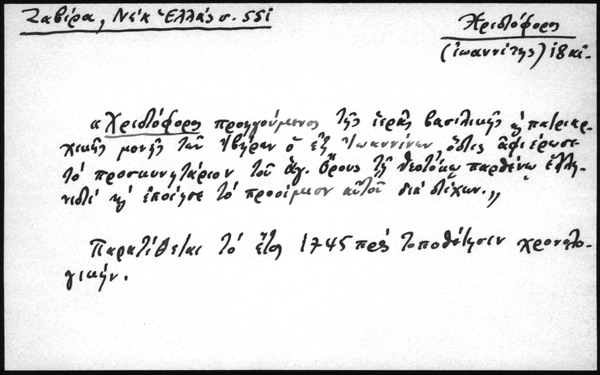 Ζαβίρα, Νέα Ἑλλάς σ. 551
Χριστόφορος
(ἰωαννίτης) 18 αἰ.
«Χριστόφορος προηγούμενος τῆς ἱερᾶς βασιλικῆς κ πατριαρ-
χικῆς μονῆς τῶν Ἰβήρων ὁ ἐξ Ἰωαννίνων, ὅστις ἀφιέρωσε
τὸ προσκυνητάριον τοῦ ἁγ. Ὄρους τῇ Θεοτόκῳ παρθένῳ ἑλλη-
νιστὶ κ ἐποίησε τὸ προοίμιον αὐτοῦ διὰ στίχων.»
Παρατίθεται τὸ ἔτος 1745 πρὸς τοποθέτησιν χρονολο-
γικήν.